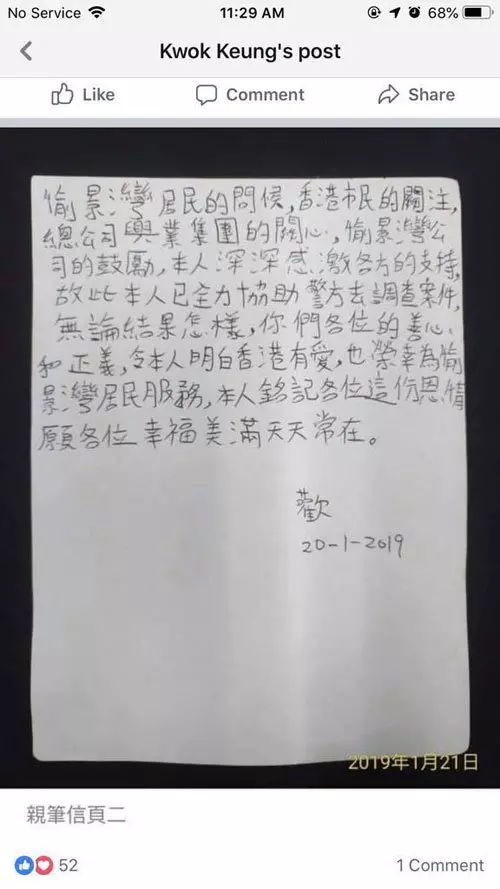 No Service 11:29 AM 68%
Kwok Keung's post
Like Comment Share
愉景灣居民的問候,香港市民的關注,
總公司興業集團的關心,愉景灣公
司的鼓勵,本人深深感激各方的支持,
故此本人已全力協助警方去調查案件,
無論結果怎樣,你們各位的善心
和正義,令本人明白香港有愛,也榮幸為愉
景灣居民服務,本人銘記各位這份恩情
願各位幸福美滿天天常在。
歡
20-1-2019
2019年1月21日
親筆信頁二
52 1 Comment